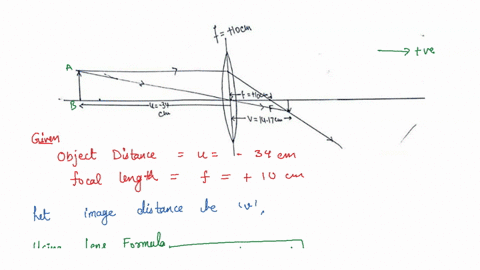 f = +10 cm
+ve
A
B
u = -34
cm
f = +10cm
F
V = 14.17cm
Given
Object Distance = u = - 34 cm
focal length = f = + 10 cm
Let image distance be 'v',
Using Lens Formula